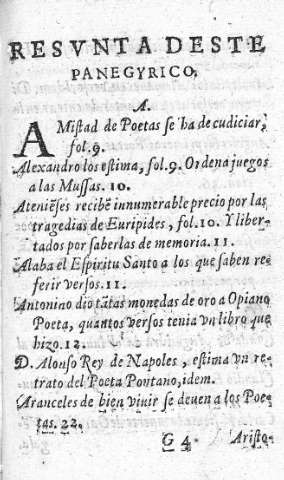 RESVNTA DESTE
PANEGYRICO,
A.
AMistad de Poetas se ha de cudiciar,
fol.9.
Alexandro los estima, fol.9. Ordena juegos
a las Mussas. 10.
Ateniẽses recibẽ innumerable precio por las
tragedias de Euripides, fol.10. Y liber-
tados por saberlas de memoria. 11.
Alaba el Espiritu Santo a los que saben re-
ferir versos. 11.
Antonino dio tãtas monedas de oro a Opiano
Poeta, quantos versos tenia vn libro que
hizo. 12.
D. Alonso Rey de Napoles, estima vn re-
trato del Poeta Pontano, idem.
Aranceles de bien viuir se deuen a los Poe-
tas. 22.
G 4. Aristo-